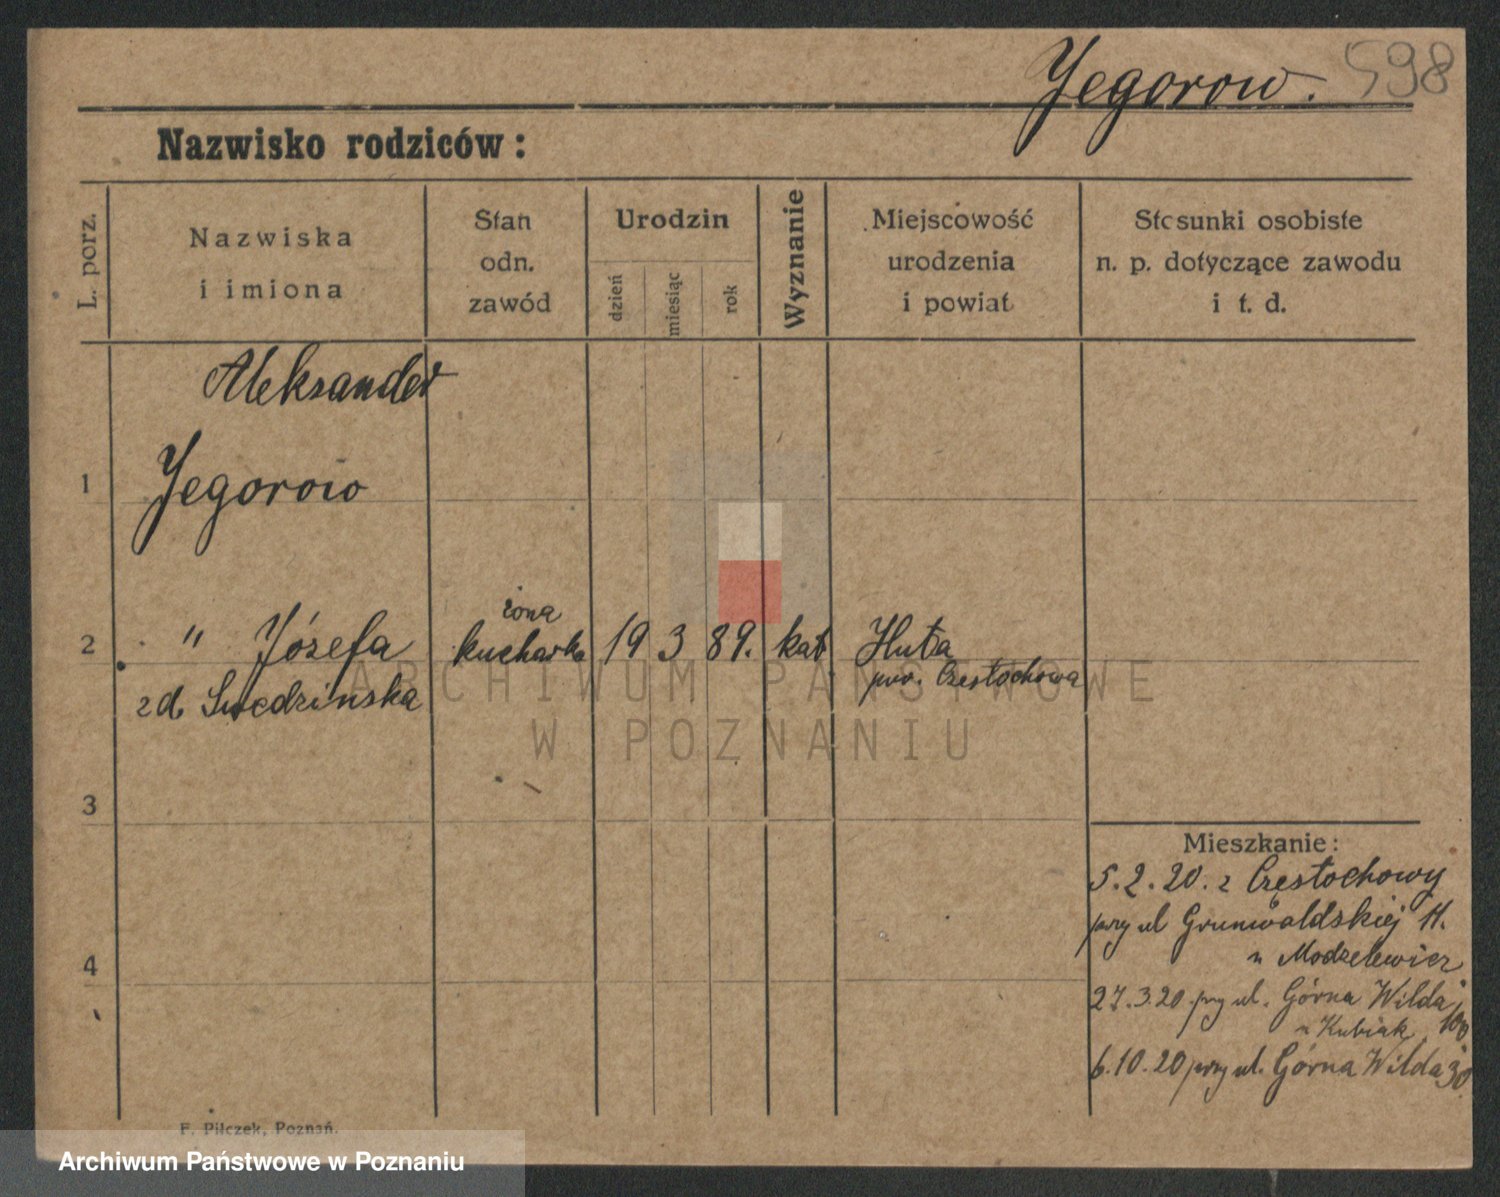 Jegorow. 598
Nazwisko rodziców:
L. porz.
Nazwiska
i imiona
Stan
odn.
zawód
Urodzin
dzień
miesiąc
rok
Wyznanie
Miejscowość
urodzenia
i powiat
Stosunki osobiste
n. p. dotyczące zawodu
i t. d.
Aleksander
1 Jegorow
żona
2 " Józefa kucharka 19 3 89. kat Huta
zd. Swedzinska pow. Częstochowa
ARCHIWUM PAŃSTWOWE
W POZNANIU
3
Mieszkanie:
5.2.20. z Częstochowy
przy ul Grunwaldskiej 11.
u Modzelewicz
4
27.3.20 przy ul. Górna Wilda
u Kubiak 100
6.10.20 przy ul. Górna Wilda 30
F. Pilczek, Poznań.
Archiwum Państwowe w Poznaniu